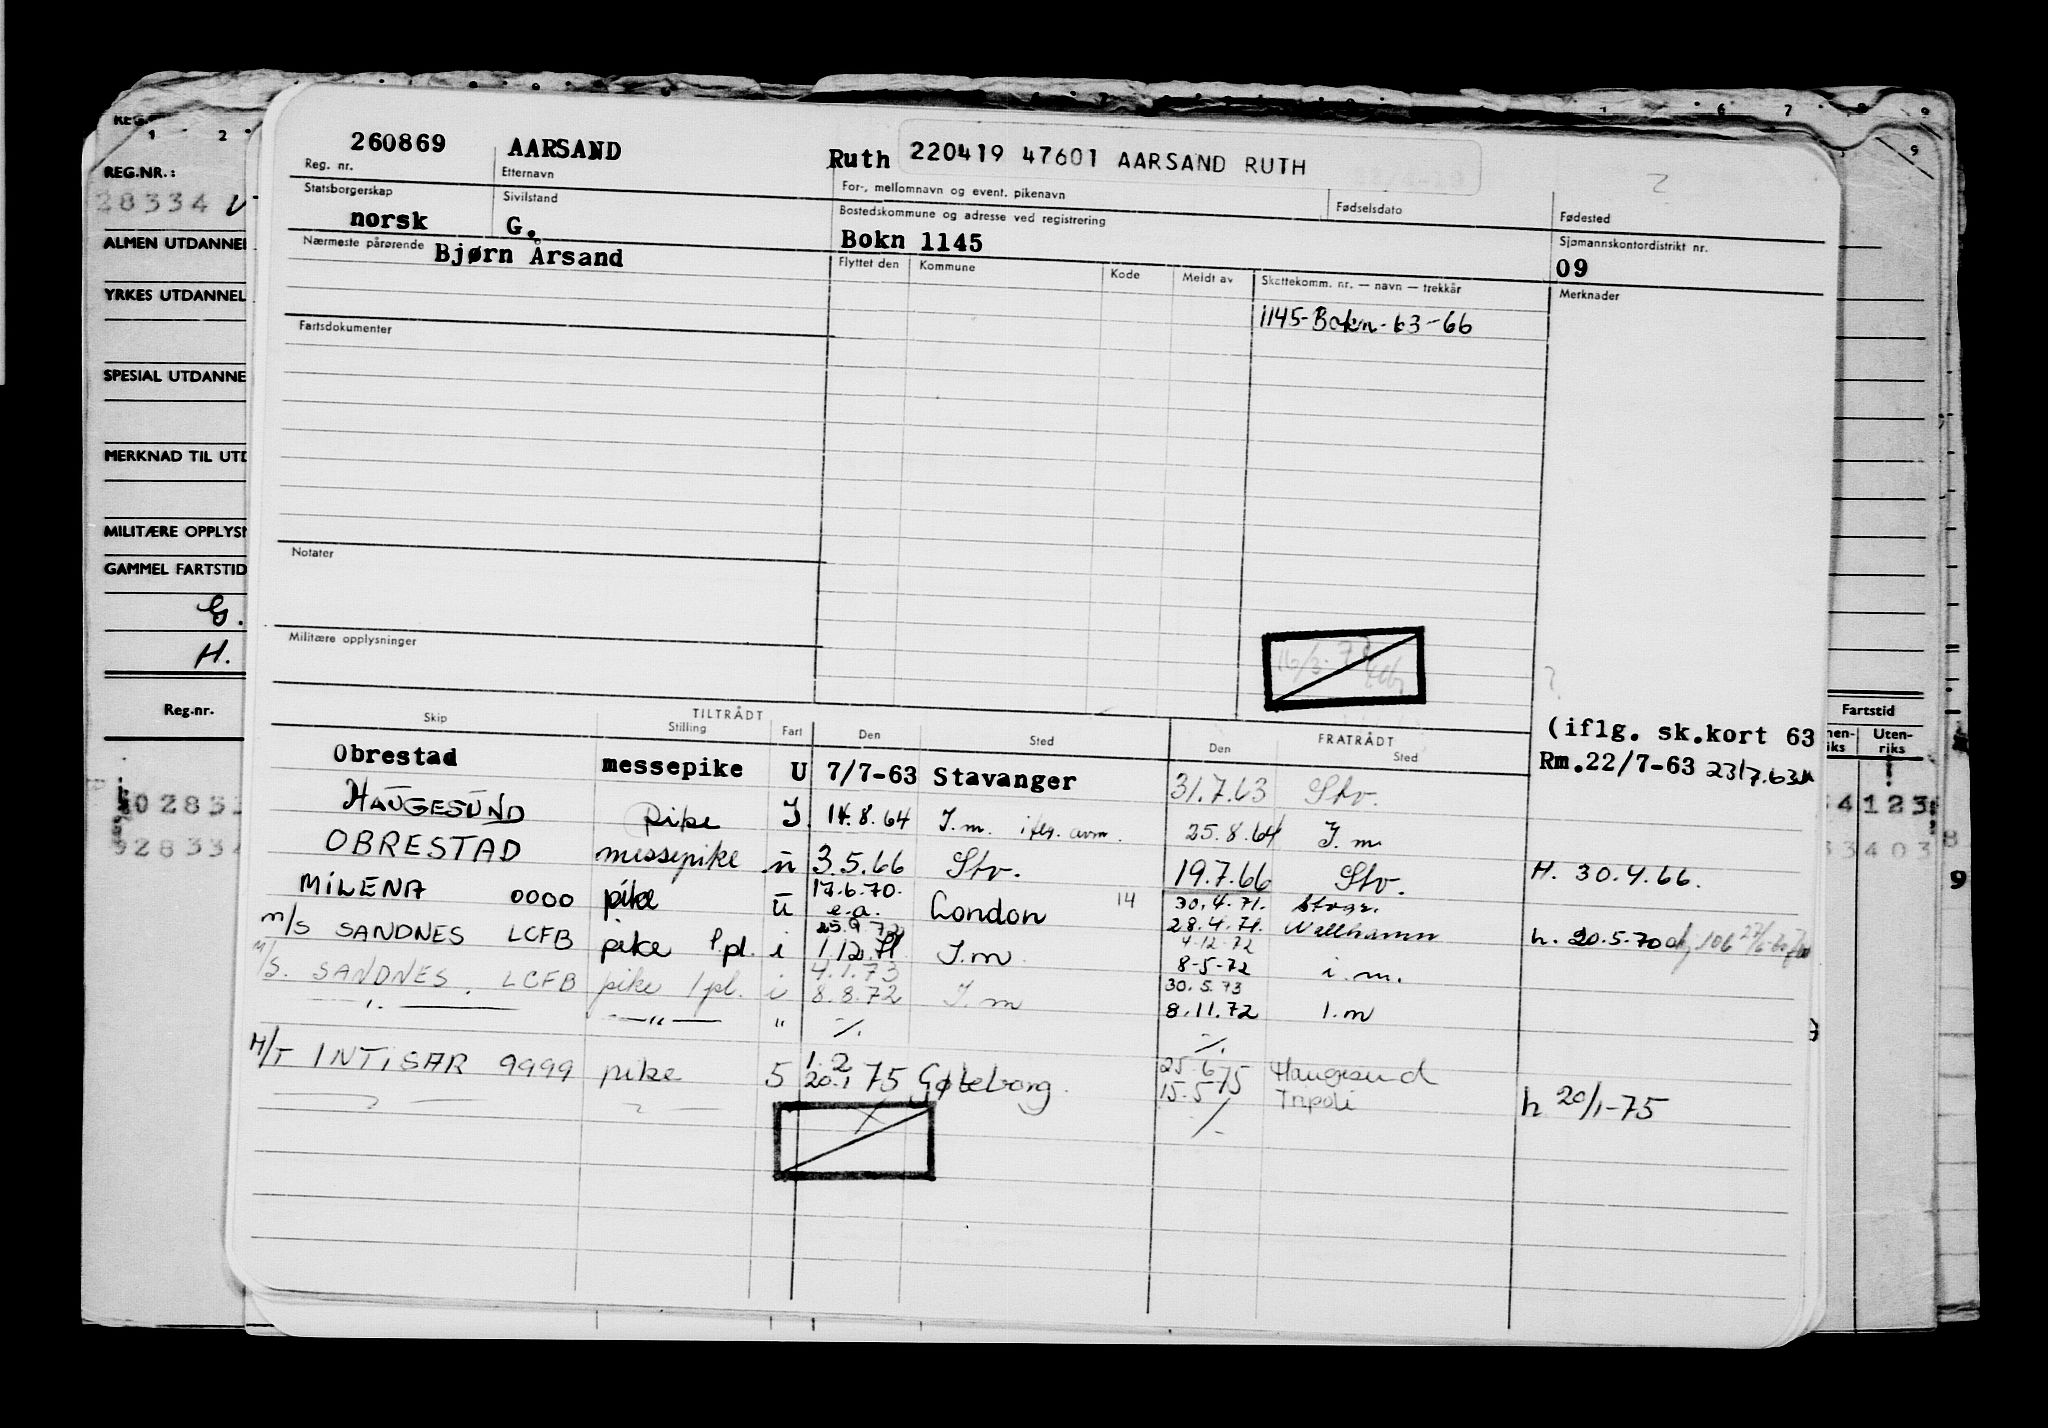 260869 AARSAND Ruth 220419 47601 AARSAND RUTH
Reg. nr. Etternavn For-, mellomnavn og event. pikenavn Fødselsdato Fødested
Statsborgerskap Sivilstand Bostedskommune og adresse ved registrering Sjømannskontordistrikt nr.
norsk G. Bokn 1145 09
Nærmeste pårørende Bjørn Årsand
Flyttet den Kommune Kode Meldt av Skattekomm. nr. — navn — trekkår Merknader
1145-Bokn-63-66
Fartsdokumenter
Notater
Militære opplysninger
REG.NR.:
28334
ALMEN UTDANNE
YRKES UTDANNEL
SPESIAL UTDANNE
MERKNAD TIL UTD
MILITÆRE OPPLYS
GAMMEL FARTSTID
G.
H.
Reg.nr.
Fartstid
Uten-
riks
TILTRÅDT FRATRÅDT
Skip Stilling Fart Den Sted Den Sted
(iflg. sk.kort 63
Obrestad messepike U 7/7-63 Stavanger 31.7.63 Stv. Rm.22/7-63 23/7.63
HAUGESUND Pike I. 14.8.64 I.m. iflg. avm. 25.8.64 I.m
OBRESTAD messepike u 3.5.66 Stv. 19.7.66 Stv. H. 30.4.66.
MILENA 0000 pike u 17.6.70. e.a. London 14 30.4.71. 28.4.71. Wallhamn h. 20.5.70
M/S SANDNES LCFB pike 1.pl. i 25.9.72 1.12.71 I.m 4.12.72 8-5-72 i.m.
M/S. SANDNES. LCFB pike 1pl. i 4.1.73 8.8.72 I.m 30.5.73 8.11.72 I.m
— " — — " — " ./. ./.
M/T INTISAR 9999 pike 5 1.2 20.1 75 Gøteborg. 25.6 15.5 75 Haugesund Tripoli h 20/1-75
./.